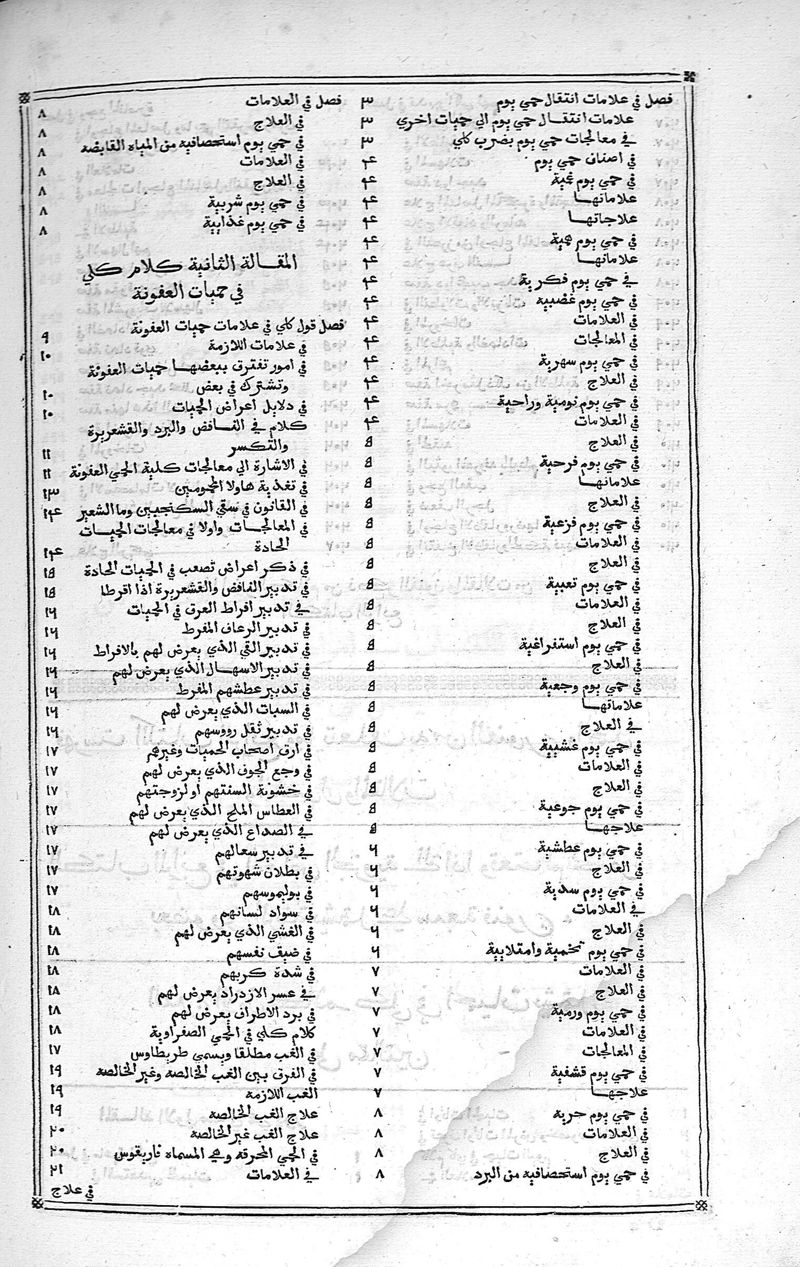 فصل في علامات انتقال حمي يوم ٣
علامات انتقال حمي يوم الي حميات اخري ٣
في معالجات حمي يوم بضرب كلي ٣
في اصناف حمي يوم ۴
في حمي يوم غمية ۴
علاماتها ۴
علاجاتها ۴
في حمي يوم همية ۴
علاماتها ۴
في حمي يوم فكرية ۴
في حمي يوم غضبيه ۴
في العلامات ۴
في المعالجات ۴
في حمي يوم سهرية ۴
في العلاج ۴
في حمي يوم نومية وراحية ۴
في العلامات ۴
في العلاج ۵
في حمي يوم فرحية ۵
علاماتها ۵
في العلاج ۵
في حمي يوم فزعية ۵
في العلامات ۵
في العلاج ۵
في حمي يوم تعبية ۵
في العلامات ۵
في العلاج ۵
في حمي يوم استفراغية ۵
في العلاج ۵
في حمي يوم وجعية ۵
علاماتها ۵
في العلاج ۵
في حمي يوم غشيية ۵
في العلامات ۵
في العلاج ۵
في حمي يوم جوعية ۵
علاجها ۵
في حمي يوم عطشية ٦
في العلاج ٦
في حمي يوم سدية ٦
في العلامات ٦
في العلاج ٦
في حمي يوم تخمية وامتلايية ٦
في العلامات ٧
في العلاج ٧
في حمي يوم ورمية ٧
في العلامات ٧
في المعالجات ٧
في حمي يوم قشفية ٧
علاجها ٧
في حمي يوم حرية ٨
في العلامات ٨
في العلاج ٨
في حمي يوم استحصافيه من البرد ٨
فصل في العلامات ٨
في العلاج ٨
في حمي يوم استحصافية من المياه القابضه ٨
في العلامات ٨
في العلاج ٨
في حمي يوم شربية ٨
في حمي يوم غذايية ٨
المقالة الثانية كلام كلي
في حميات العفونة
فصل قول كلي في علامات حميات العفونة ٩
في علامات اللازمة ١٠
في امور تفترق ببعضها حميات العفونة
وتشترك في بعض ١٠
في دلايل اعراض الحميات ١٠
كلام في النافض والبرد والقشعريرة
والتكسر ١١
في الاشارة الي معالجات كلية الحمي العفونة ١١
في تغذية هاولا المحمومين ١٣
في القانون في سقي السكنجبين وما الشعير ١۴
في المعالجات واولا في معالجات الحميات
الحادة ١۴
في ذكر اعراض تصعب في الحميات الحادة ١۵
في تدبير النافض والقشعريرة اذا افرطا ١۵
في تدبير افراط العرق في الحميات ١٦
في تدبير الرعاف المفرط ١٦
في تدبير القي الذي يعرض لهم بالافراط ١٦
في تدبير الاسهال الذي يعرض لهم ١٦
في تدبير عطشهم المفرط ١٦
في السبات الذي يعرض لهم ١٦
في تدبير ثقل رووسهم ١٦
في ارق اصحاب الحميات وغيرهم ١٧
في وجع الجوف الذي يعرض لهم ١٧
في خشونة السنتهم او لزوجتهم ١٧
في العطاس الملح الذي يعرض لهم ١٧
في الصداع الذي يعرض لهم ١٧
في تدبير سعالهم ١٧
في بطلان شهوتهم ١٧
في بوليموسهم ١٧
في سواد لسانهم ١٨
في الغشي الذي يعرض لهم ١٨
في ضيف نفسهم ١٨
في شدة كربهم ١٨
في عسر الازدراد يعرض لهم ١٨
في برد الاطراف يعرض لهم ١٨
كلام كلي في الحمي الصفراوية ١٨
في الغب مطلقا ويسمي طريطاوس ١٧
في الفرق بين الغب الخالصه وغير الخالصه ١٩
الغب اللازمه ١٩
علاج الغب الخالصه ١٩
علاج الغب غير الخالصه ٢٠
في الحمي المحرقه وهي المسماه فاريقوس ٢٠
في العلامات ٢١
في علاج